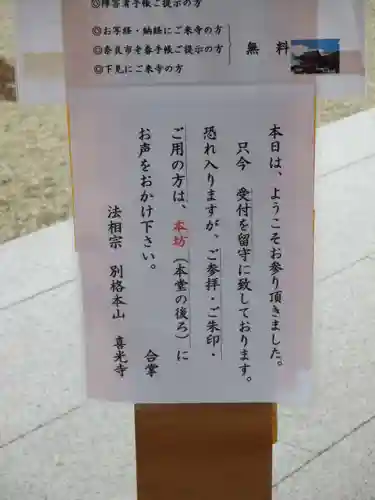 ◎障害者手帳ご提示の方
◎お写経・納経にご来寺の方
◎奈良市老春手帳ご提示の方
◎下見にご来寺の方
無料
本日は、ようこそお参り頂きました。
只今 受付を留守に致しております。
恐れ入りますが、ご参拝・ご朱印・
ご用の方は、本坊(本堂の後ろ)に
お声をおかけ下さい。
合掌
法相宗 別格本山 喜光寺